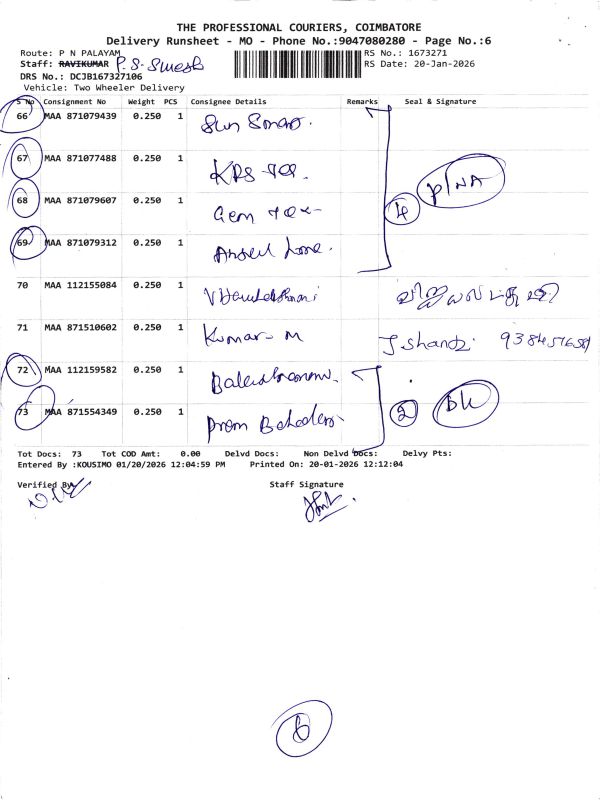 THE PROFESSIONAL COURIERS, COIMBATORE
Delivery Runsheet - MO - Phone No.:9047080280 - Page No.:6
Route: P N PALAYAM RS No.: 1673271
Staff: RAVIKUMAR P. S. Suresh RS Date: 20-Jan-2026
DRS No.: DCJB167327106
Vehicle: Two Wheeler Delivery
S No Consignment No Weight PCS Consignee Details Remarks Seal & Signature
66 MAA 871079439 0.250 1 Sun
67 MAA 871077488 0.250 1 KRS
68 MAA 871079607 0.250 1 Gem Tex
69 MAA 871079312 0.250 1
4 P/NA
70 MAA 112155084 0.250 1
71 MAA 871510602 0.250 1 Kumar M
72 MAA 112159582 0.250 1
73 MAA 871554349 0.250 1 Prem
2 DL
Tot Docs: 73 Tot COD Amt: 0.00 Delvd Docs: Non Delvd Docs: Delvy Pts:
Entered By :KOUSIMO 01/20/2026 12:04:59 PM Printed On: 20-01-2026 12:12:04
Verified By Staff Signature
6